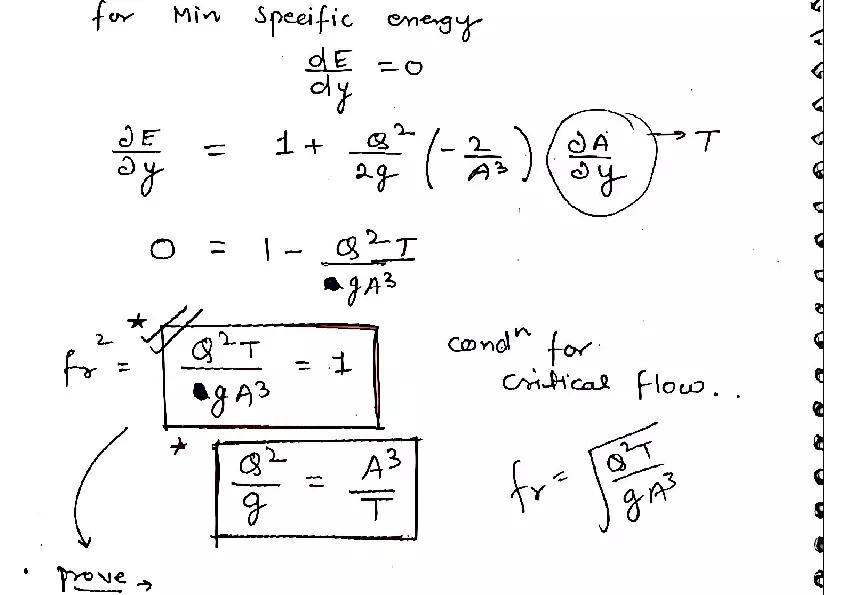 for Min Specific energy
dE/dy = 0
∂E/∂y = 1 + Q²/2g (-2/A³) (∂A/∂y) → T
0 = 1 - Q²T/gA³
★ fr² = Q²T/gA³ = 1 condⁿ for
critical flow..
★ Q²/g = A³/T fr = √(Q²T/gA³)
. prove →